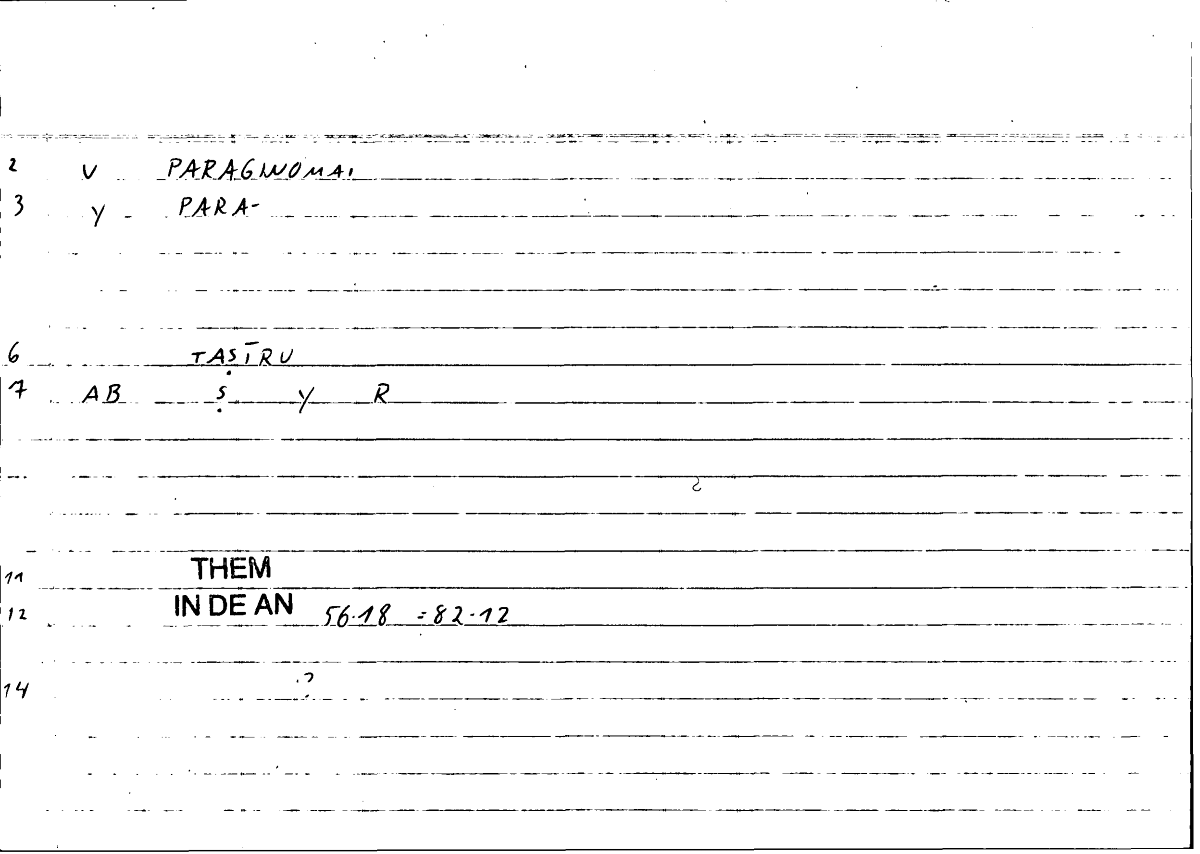 2 V PARAGINOMAI
3 Y - PARA-
6 TAṢĪRU
7 AB Ṣ Y R
11 THEM
12 IN DE AN 56.18 = 82.12
14 ?